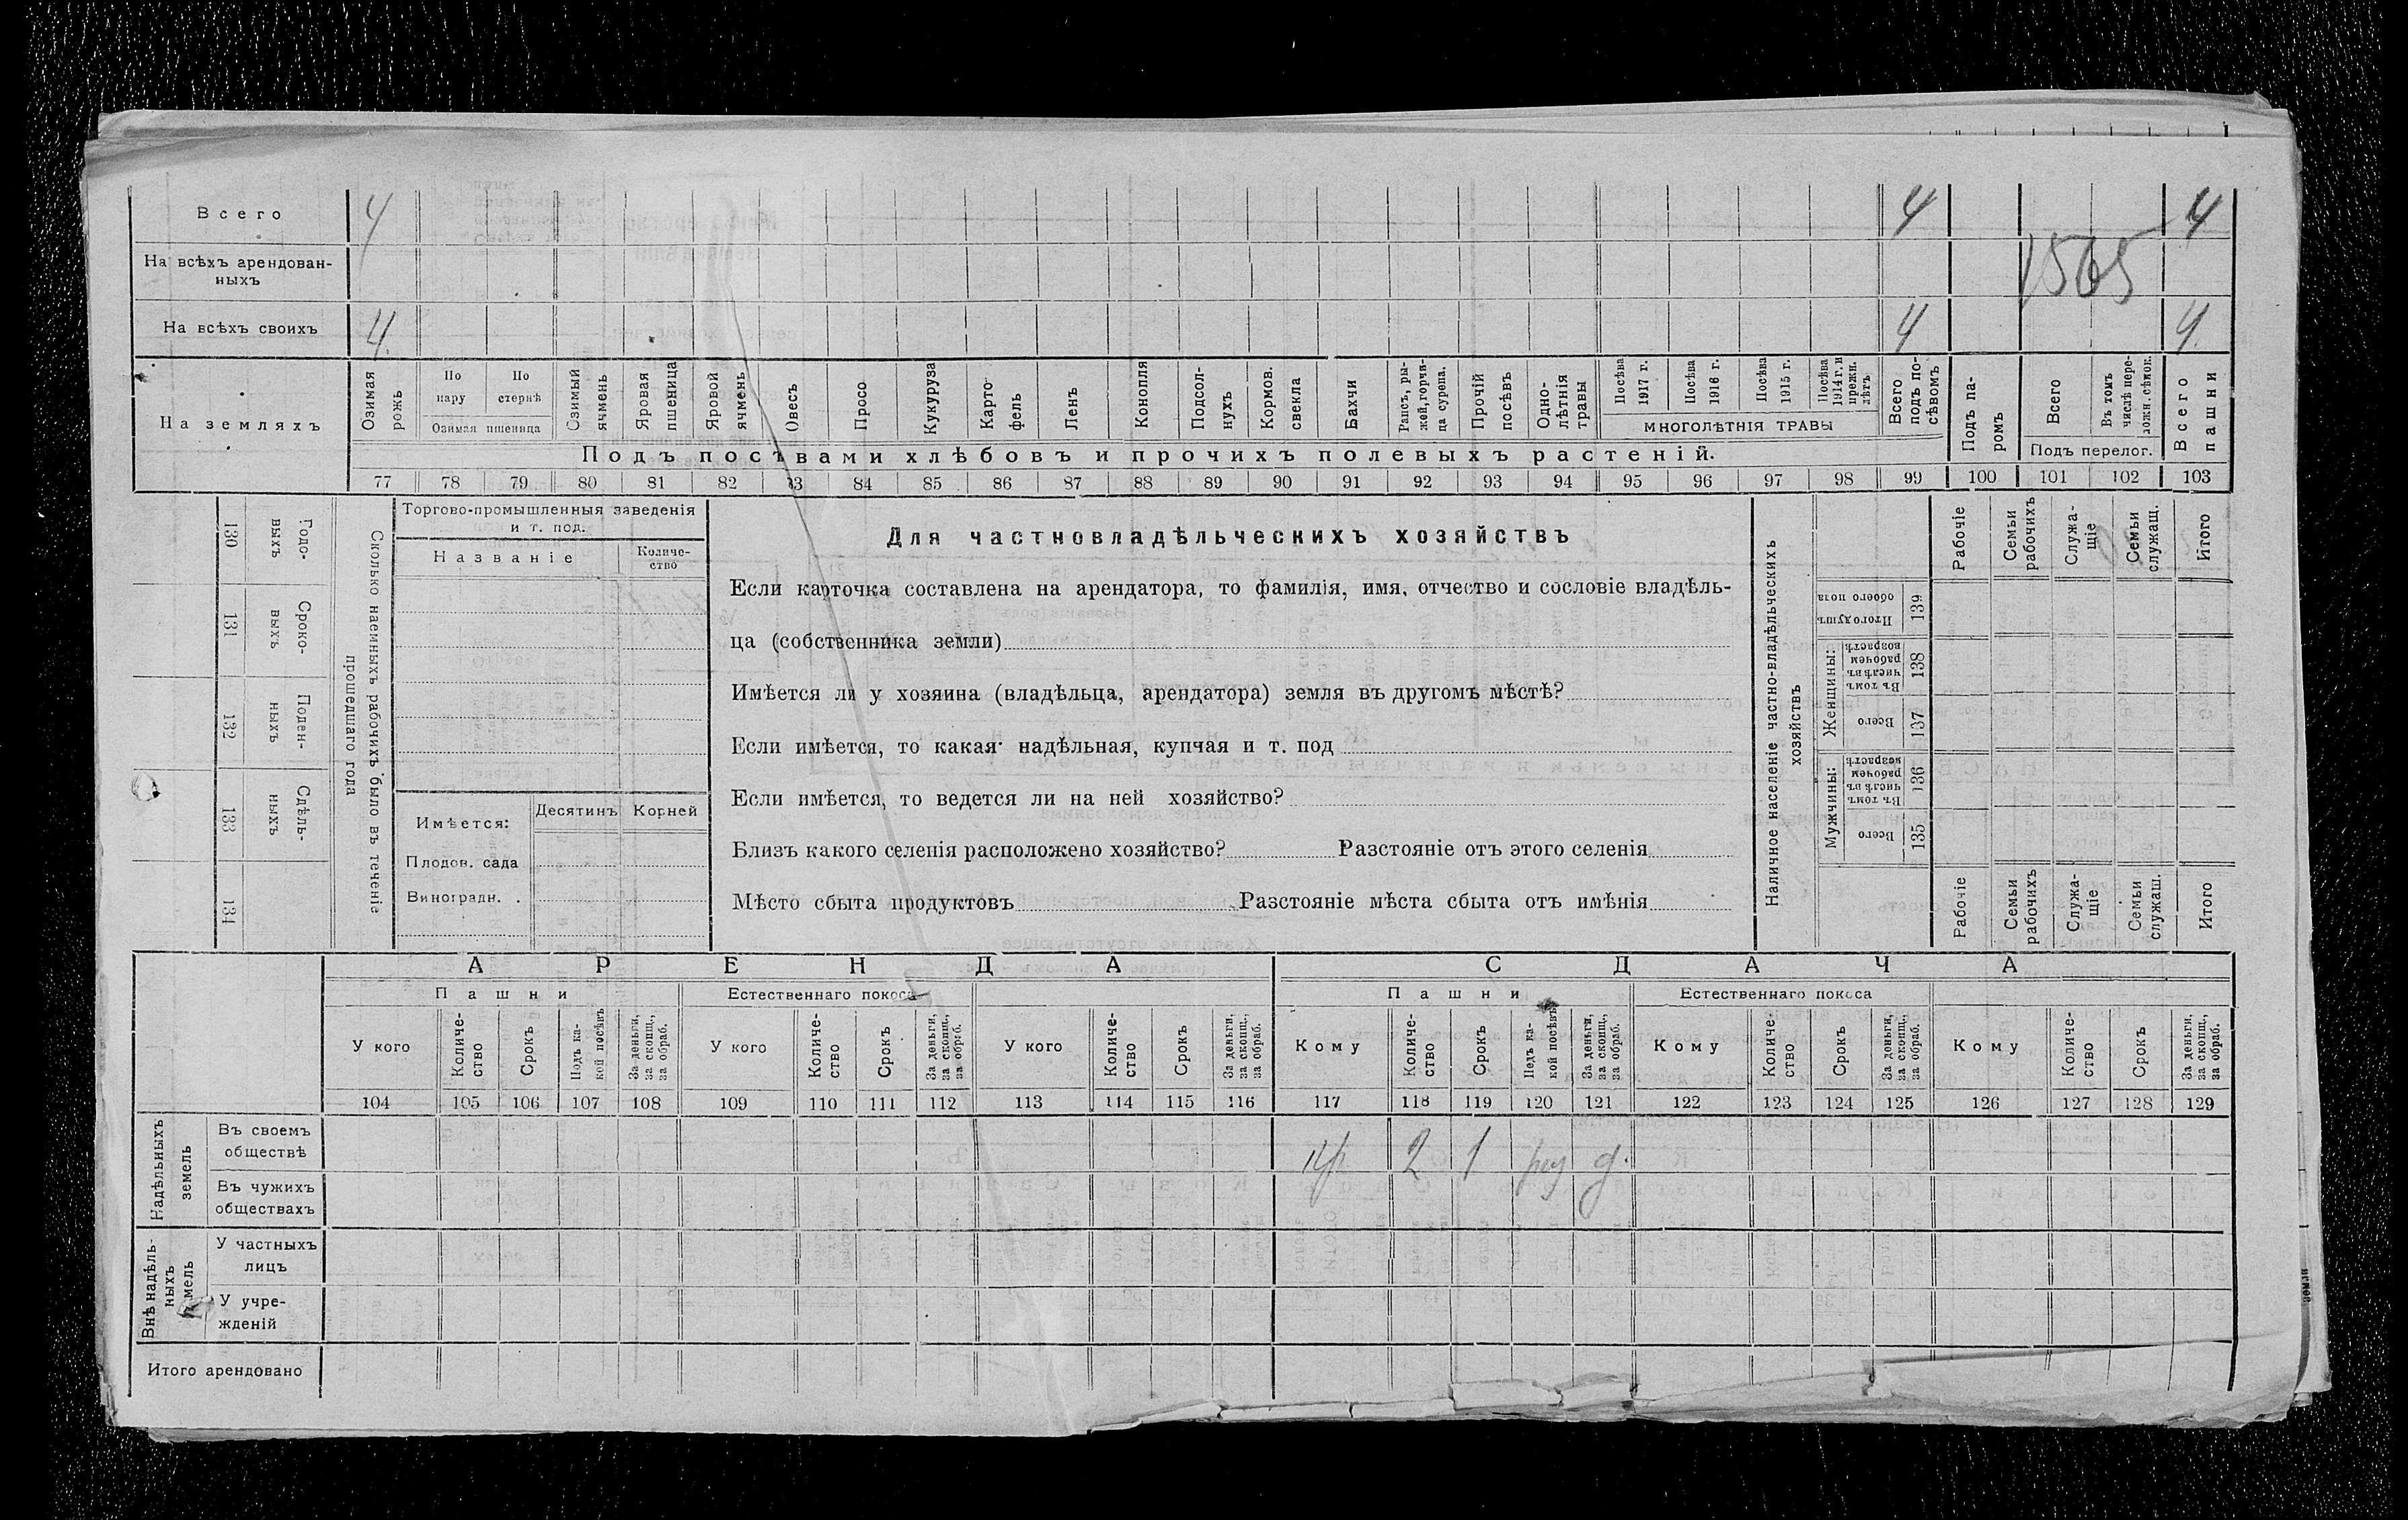 Всего 4 4 4
На всѣхъ арендован-
ныхъ 1565
На всѣхъ своихъ 4. 4 4.
На земляхъ
Озимая рожь
По пару
По стернѣ
Озимая пшеница
Озимый ячмень
Яровая пшеница
Яровой ячмень
Овесъ
Просо
Кукуруза
Картофель
Ленъ
Конопля
Подсол-
нухъ
Кормов. свекла
Бахчи
Рапсъ, ры-
жей, горчи-
ца сурепа.
Прочій посѣвъ
Одно-
лѣтнія травы
Посѣва 1917 г.
Посѣва 1916 г.
Посѣва 1915 г.
Посѣва 1914 г. и прежн. лѣтъ
МНОГОЛѢТНІЯ ТРАВЫ
Всего подъ по-
сѣвомъ
Подъ па-
ромъ
Всего
Въ томъ числѣ пере-
ложн. сѣнок.
Подъ перелог.
Всего пашни
Подъ посѣвами хлѣбовъ и прочихъ полевыхъ растеній.
77 78 79 80 81 82 83 84 85 86 87 88 89 90 91 92 93 94 95 96 97 98 99 100 101 102 103
Сколько наемныхъ рабочихъ было въ теченіе
прошедшаго года
Годо-
выхъ
130
Сроко-
выхъ
131
Поден-
ныхъ
132
Сдѣль-
ныхъ
133
134
Торгово-промышленныя заведенія
и т. под.
Названіе
Количе-
ство
Имѣется:
Десятинъ
Корней
Плодов. сада
Виноградн. .
Для частновладѣльческихъ хозяйствъ
Если карточка составлена на арендатора, то фамилія, имя, отчество и сословіе владѣль-
ца (собственника земли)
Имѣется ли у хозяина (владѣльца, арендатора) земля въ другомъ мѣстѣ?
Если имѣется, то какая: надѣльная, купчая и т. под
Если имѣется, то ведется ли на ней хозяйство?
Близъ какого селенія расположено хозяйство? Разстояніе отъ этого селенія
Мѣсто сбыта продуктовъ Разстояніе мѣста сбыта отъ имѣнія
Наличное населеніе частно-владѣльческихъ
хозяйствъ
Рабочіе
Семьи рабочихъ
Служа-
щіе
Семьи служащ.
Итого
Итого душъ обоего пола
139
Женщины:
Въ томъ числѣ въ рабочемъ возрастѣ
138
Всего
137
Мужчины:
Въ томъ числѣ въ рабочемъ возрастѣ
136
Всего
135
Рабочіе
Семьи рабочихъ
Служа-
щіе
Семьи служащ.
Итого
АРЕНДА СДАЧА
Пашни Естественнаго покоса Пашни Естественнаго покоса
У кого
Количе-
ство
Срокъ
Подъ ка-
кой посѣвъ
За деньги,
за скопщ.,
за обраб.
У кого
Количе-
ство
Срокъ
За деньги,
за скопщ.,
за обраб.
У кого
Количе-
ство
Срокъ
За деньги,
за скопщ.,
за обраб.
Кому
Количе-
ство
Срокъ
Подъ ка-
кой посѣвъ
За деньги,
за скопщ.,
за обраб.
Кому
Количе-
ство
Срокъ
За деньги,
за скопщ.,
за обраб.
Кому
Количе-
ство
Срокъ
За деньги,
за скопщ.,
за обраб.
104 105 106 107 108 109 110 111 112 113 114 115 116 117 118 119 120 121 122 123 124 125 126 127 128 129
Надѣльныхъ
земель
Въ своемъ
обществѣ 2 1 д.
Въ чужихъ
обществахъ
Внѣ надѣль-
ныхъ
У частныхъ
лицъ
У учре-
жденій
Итого арендовано